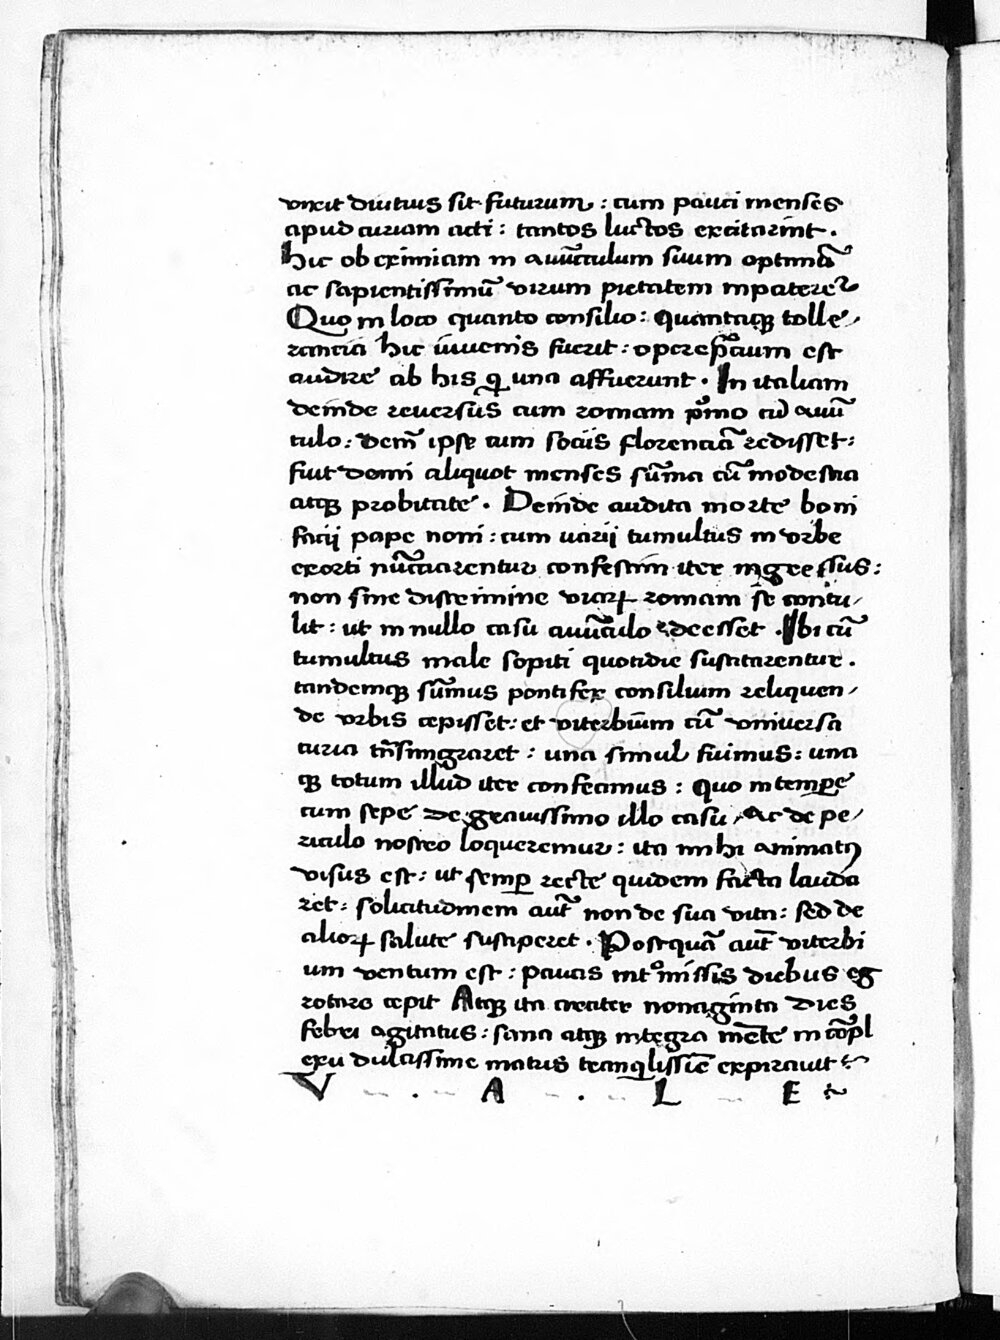 vixit diutius sit futurum : cum pauci menses
apud curiam acti : tantos luctos excitarint .
Hic ob eximiam in auūculum suum optimū
ac sapientissimū virum pietatem inpateret᷑
Quo in loco quanto consilio : quantaqꝫ tolle/
rancia hic iuuenis fuerit : operep̄cium est
audire ab his q̄ una affuerunt . In italiam
deinde reuersus cum romam pͦmo cū auū
culo : dem̄ ipse cum sociis florenciā redisset :
fuit domi aliquot menses sūma cū modestia
atqꝫ probitate . Deinde audita morte boni
facij pape noni : cum uarij tumultus in vrbe
exorti nūciarentur confestim iter ingressus :
non sine discrimine viaꝝ romam se contu/
lit : ut in nullo casu auūculo deesset . Ibi cū
tumultus male sopiti quotidie suscitarentur .
tandemqꝫ sūmus pontifex consilium reliquen/
de vrbis cepisset : et viterbium cū vniuersa
curia trāsmigraret : una simul fuimus : una
qꝫ totum illud iter confecimus : Quo in tempore
cum sepe de grauissimo illo casu / Ac de pe/
riculo nostro loqueremur : ita mihi animatꝰ
visus est : ut semꝑ recte quidem facta lauda
ret : solicitudinem aut̄ non de sua vita : sed de
alioꝝ salute susciperet . Postquā aut̄ viterbi
um ventum est : paucis intͦmissis diebus eg
rotare cepit Atqꝫ ita circiter nonaginta dies
febri agitatus : sana atqꝫ integra mēte in cōpl
exu dulcissime matris tranq̄llissīe expirauit :~
V . A . L E :~